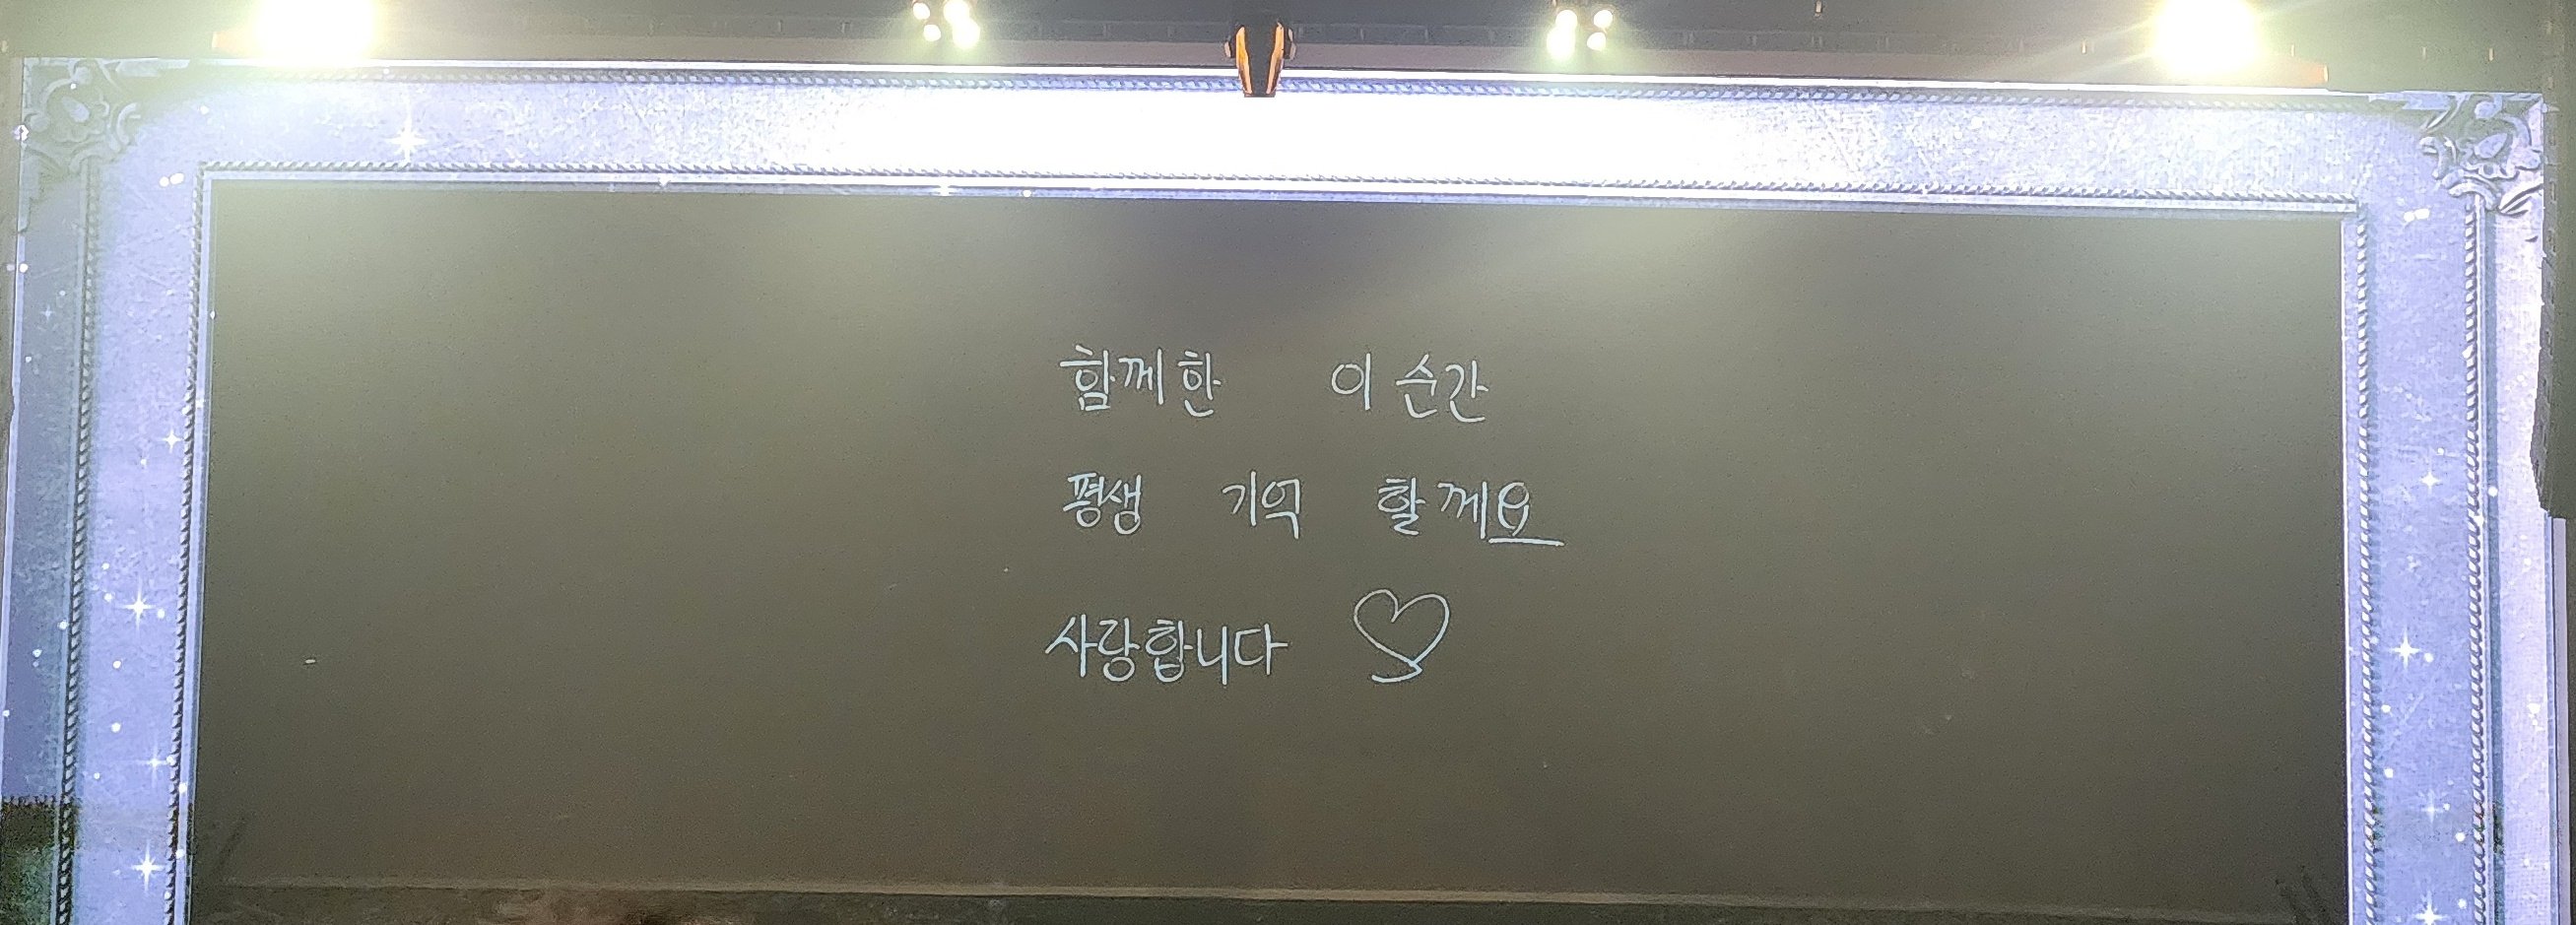 함께한 이 순간
평생 기억 할께요
사랑합니다 ♡